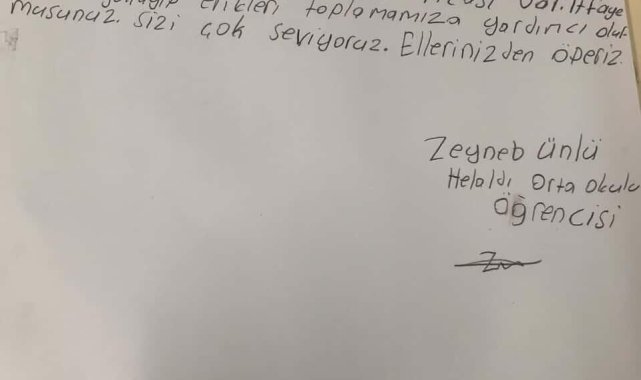 erikleri toplamamıza yardımcı olur
musunuz. sizi çok seviyoruz. Ellerinizden öperiz.
Zeyneb Ünlü
Helaldı Orta Okulu
Öğrencisi